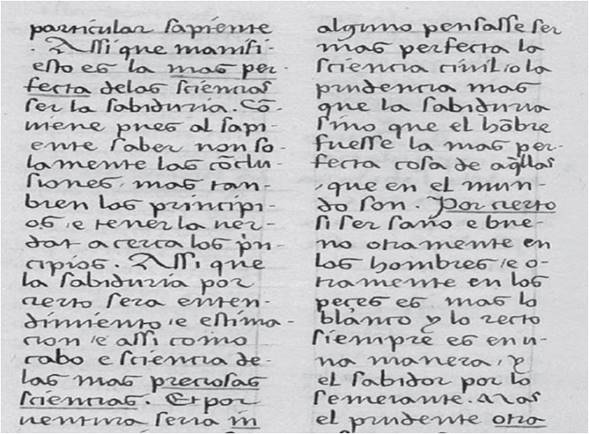 particular sapiente
. Assi que manifi-
esto es la mas per-
fecta delas sciencias
ser la sabiduria. Cõ-
viene pues al sapi-
ente saber non so-
lamente las cõclu-
siones, mas tan-
bien los principi-
os, e tener la ver-
dat acerca los pͥn-
cipios. Assi que
la sabiduria por
cierto sera enten-
dimiento, e estima-
cion, e assi como
cabo e sciencia de-
las mas preciosas
sciencias. Et por
uentura seria in
alguno pensasse ser
mas perfecta la
sciencia civil, o la
prudencia mas
que la sabiduria
sino que el hõbre
fuesse la mas per-
fecta cosa de aq̃llas
, que en el mun-
do son. Por cierto
si ser sano e bue-
no otramente en
los hombres, e o-
tramente en los
peçes es mas lo
blanco y lo recto
siempre es en u-
na manera, y
el sabidor por lo
semejante. Mas
el prudente otra